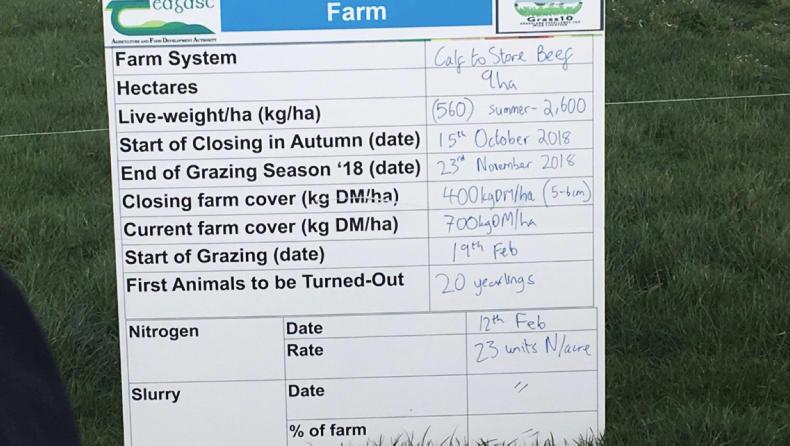 eagasc
AGRICULTURE AND FOOD DEVELOPMENT AUTHORITY
Farm
Grass10
Farm System Calf to Store Beef
Hectares 9ha
Live-weight/ha (kg/ha) (560) summer- 2,600
Start of Closing in Autumn (date) 15th October 2018
End of Grazing Season ‘18 (date) 23rd November 2018
Closing farm cover (kg DM/ha) 400kgDM/ha (5-6cm)
Current farm cover (kg DM/ha) 700kgDM/ha
Start of Grazing (date) 19th Feb
First Animals to be Turned-Out 20 yearlings
Nitrogen Date 12th Feb
Rate 23 units N/acre
Slurry Date "
% of farm